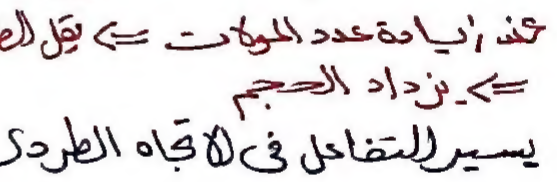 عند زيادة عدد المولات => يقل
=> يزداد الحجم
يسير التفاعل فى الاتجاه الطردى